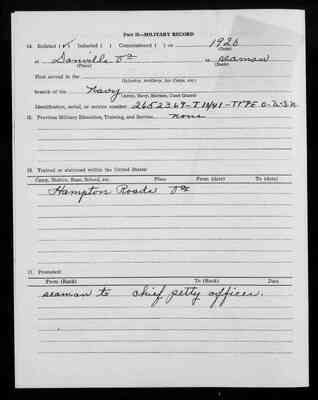 Part II—MILITARY RECORD
14. Enlisted (✓) Inducted ( ) Commissioned ( ) on 1926
(Date)
at Danville Va as seaman
(Place) (Rank)
First served in the
(Infantry, Artillery, Air Corps, etc.)
branch of the Navy
(Army, Navy, Marines, Coast Guard)
Identification, serial, or service number 2652269-T10/41-TYPE O-U.S.N
15. Previous Military Education, Training, and Service. none
16. Trained or stationed within the United States:
Camp, Station, Base, School, etc. Place From (date) To (date)
Hampton Roads Va
17. Promoted:
From (Rank) To (Rank) Date
seaman to chief petty officer.